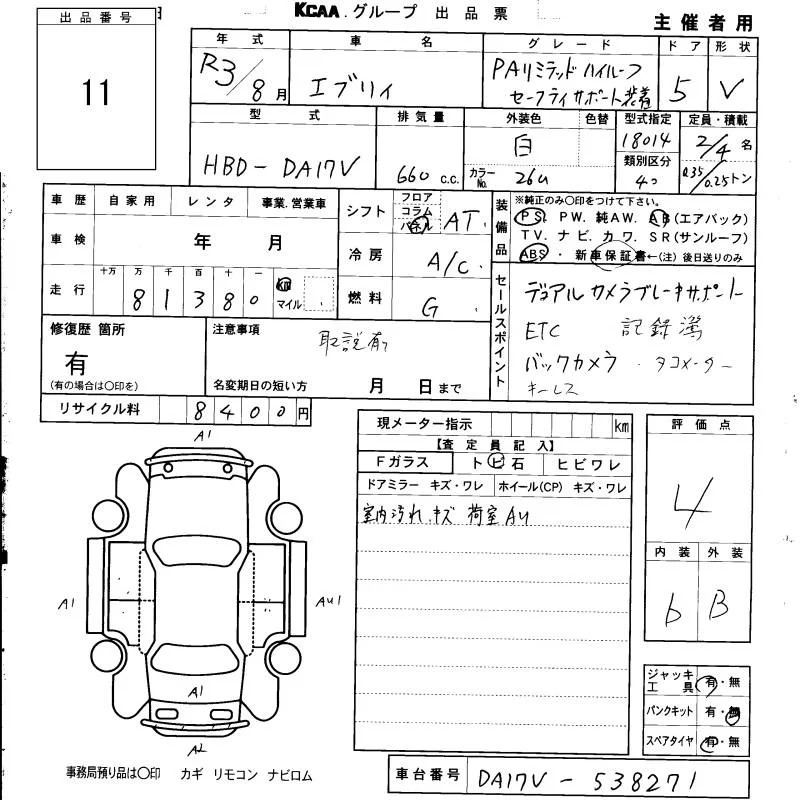 KCAA.グループ 出品票
主催者用
出品番号
11
年式 車名 グレード ドア 形状
R3/8月 エブリィ PAリミテッド ハイルーフ
セーフティサポート装着 5 V
型式 排気量 外装色 色替 型式指定 定員・積載
HBD-DA17V 660 c.c. 白 18014 2/4名
カラーNo. 26U 類別区分 0.35/0.25トン
車歴 自家用 レンタ 事業.営業車
車検 年 月
走行 十万 万 千 百 十 一
81380 km マイル
シフト フロア コラム パネル AT.
冷房 A/C.
燃料 G.
装備品 ※純正のみ○印をつけて下さい。
PS. PW. 純AW. AB(エアバック)
TV. ナビ. カワ. SR(サンルーフ)
ABS. 新車保証書←(注)後日送りのみ
セールスポイント
デュアルカメラブレーキサポート
ETC 記録簿
バックカメラ . タコメーター
キーレス
修復歴 箇所
有
(有の場合は○印を)
注意事項
取説有り
名変期日の短い方 月 日まで
リサイクル料 8400円
現メーター指示 km
【査定員記入】
Fガラス トビ石 ヒビワレ
ドアミラー キズ・ワレ ホイール(CP) キズ・ワレ
室内汚れ.キズ 荷室AU
評価点
4
内装 外装
b B
A1
A1
AU1
A1
A2
ジャッキ工具 有・無
パンクキット 有・無
スペアタイヤ 有・無
事務局預り品は○印 カギ リモコン ナビロム
車台番号 DA17V-538271